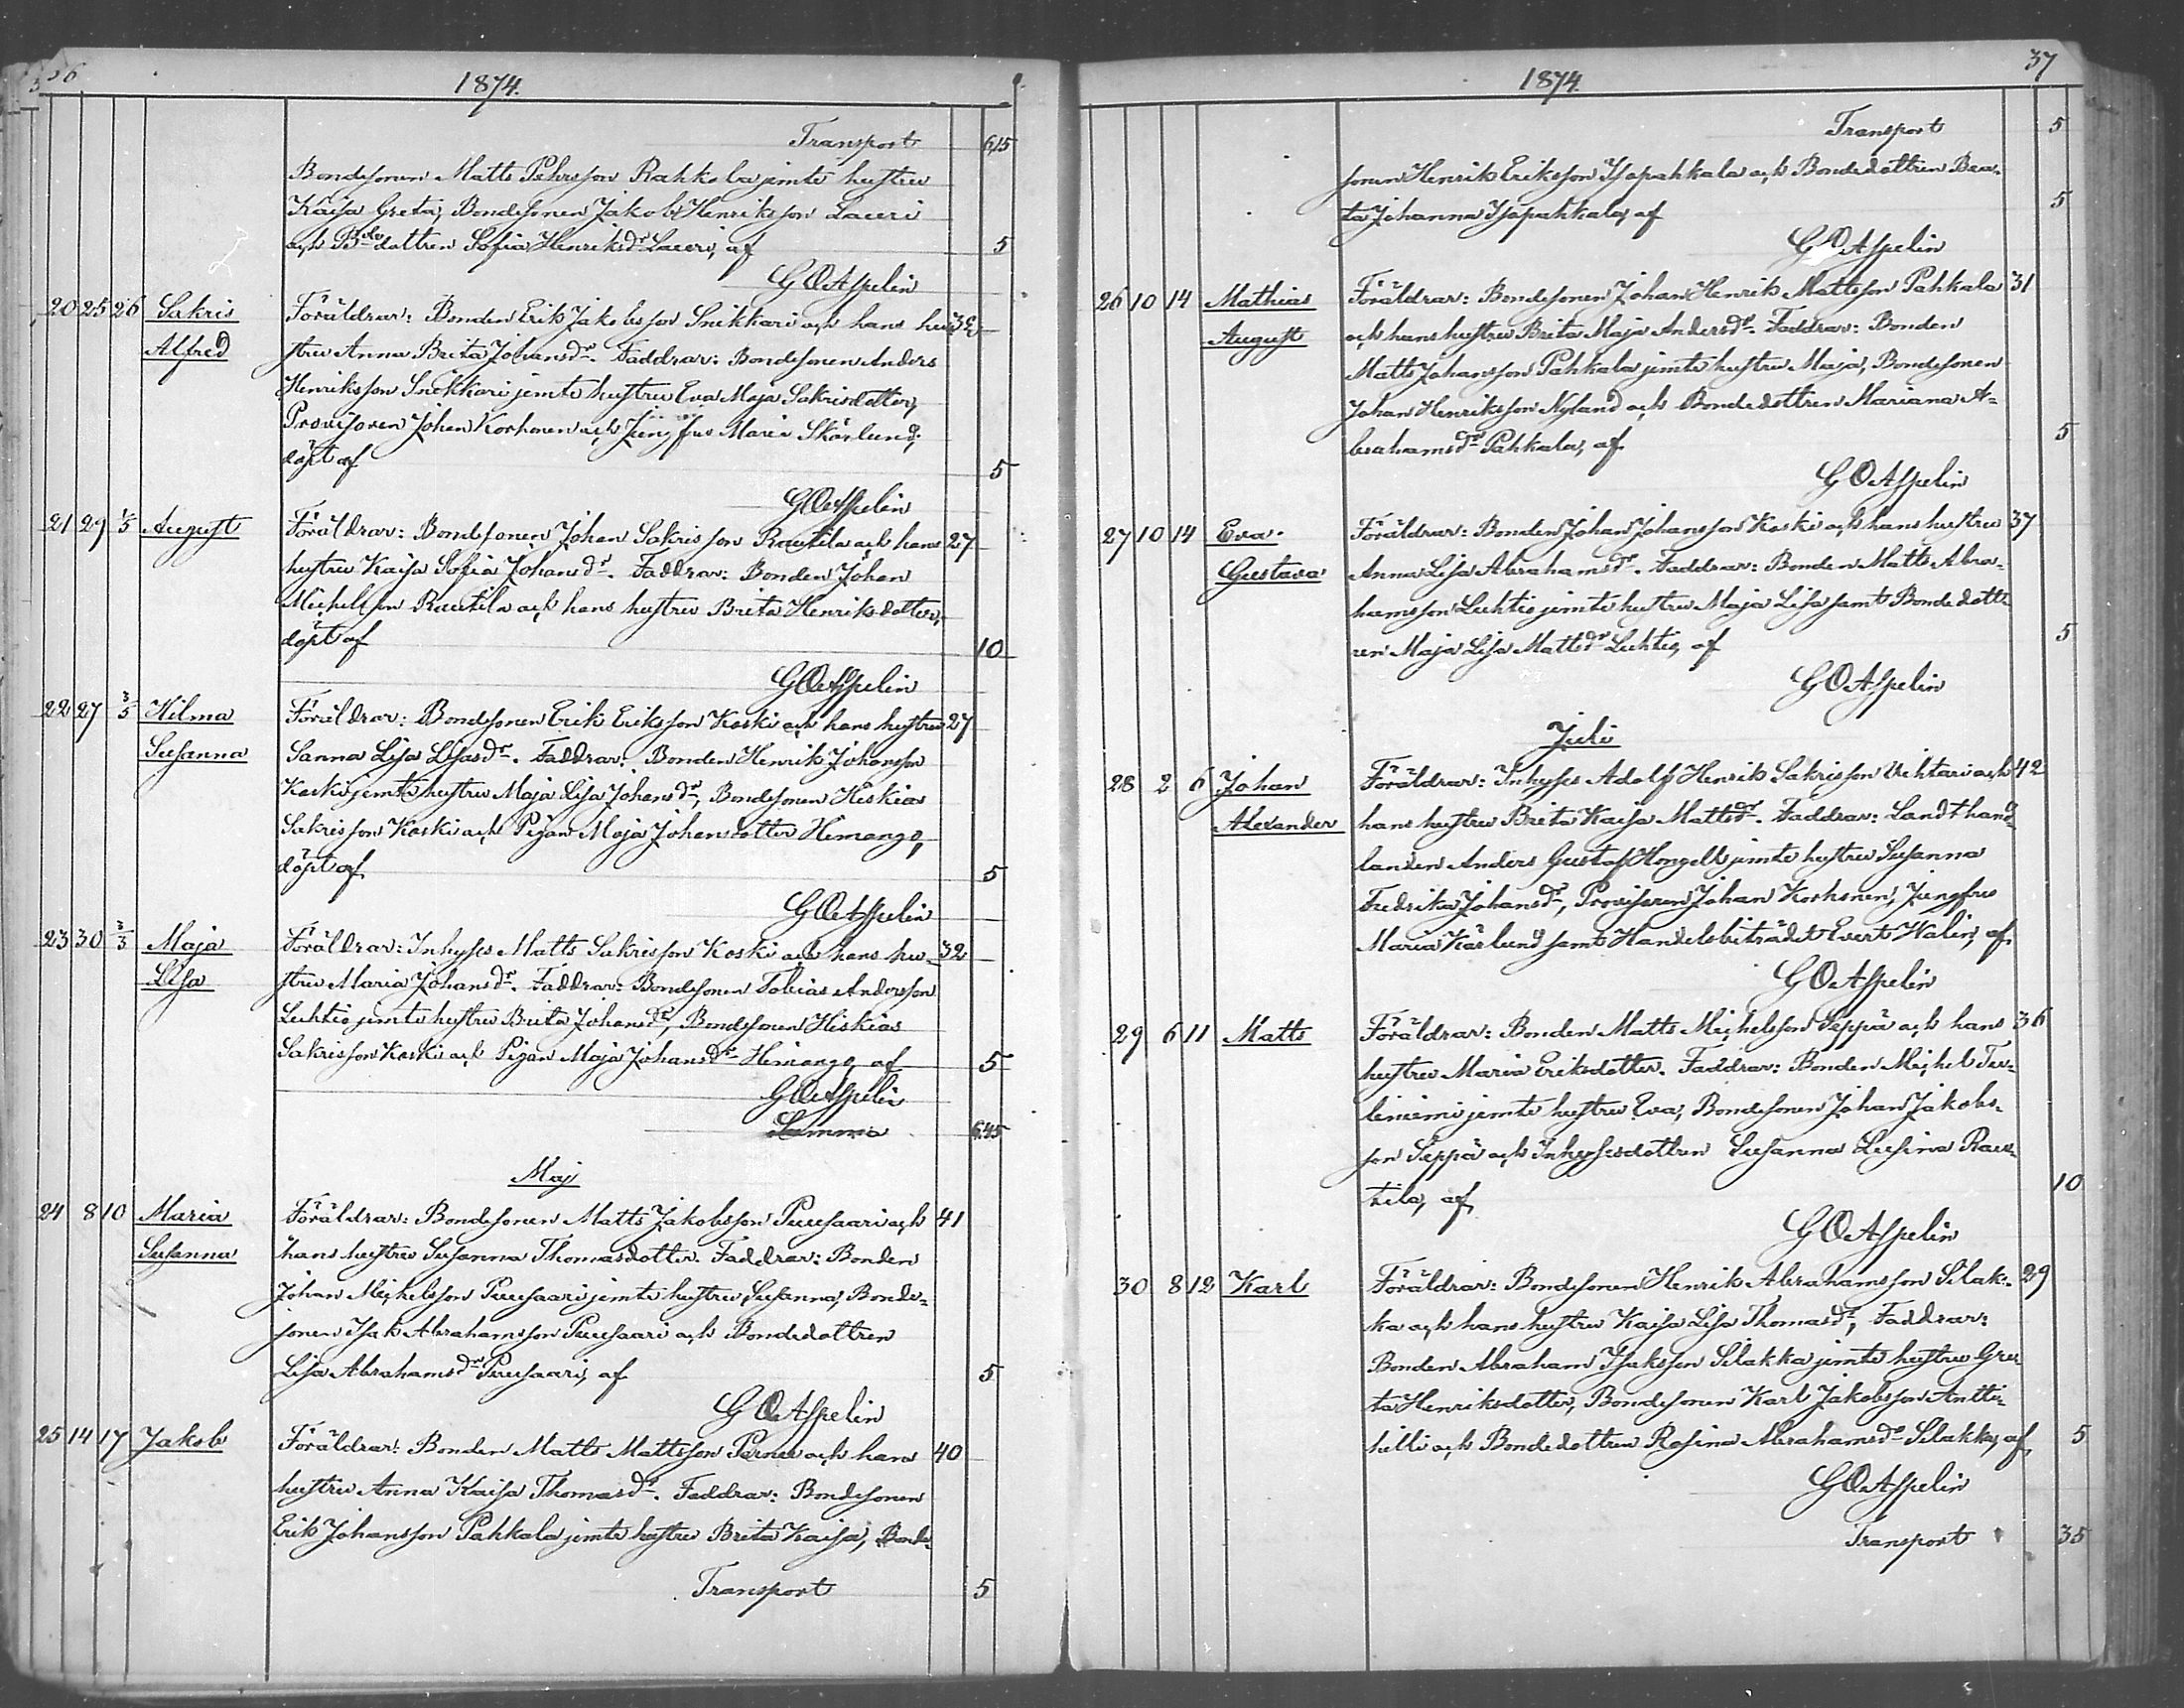 36
1874.
Transport 6,15
Bondesonen Matts Pehrsson Rahkola jemte hustru
Kaisa Greta, Bondesonen Jakob Henriksson Lauri
och Bdedottren Sofia Henriksdr Lauri, af 5
G O Aspelin
20 25 26 Sakris Föräldrar: Bonden Erik Jakobsson Snikkari och hans hu-
Alfred stru Anna Brita Johansdr. Faddrar: Bondesonen Anders
Henriksson Snikkari jemte hustru Eva Maja Sakrisdotter,
Provisoren Johan Korhonen och Jungfru Maria Skärlund,
döpt af 5
G O Aspelin
21 29 1/5 August Föräldrar: Bondesonen Johan Sakrisson Rautila och hans 27
hustru Kaisa Sofia Johansdr. Faddrar: Bonden Johan
Michelsson Rautila och hans hustru Brita Henriksdotter,
döpt af 10
G O Aspelin
22 27 3/5 Hilma Föräldrar: Bondesonen Erik Eriksson Koski och hans hustru 27
Susanna Sanna Lisa Lisasdr. Faddrar: Bonden Henrik Johansson
Koski jemte hustru Maja Lisa Johansdr, Bondesonen Hiskias
Sakrisson Koski och Pigan Maja Johansdotter Himango,
döpt af 5
G O Aspelin
23 30 3/3 Maja Föräldrar: Inhyses Matts Sakrisson Koski och hans hu- 32
Lisa stru Maria Johansdr. Faddrar: Bondesonen Tobias Andersson
Luhtio jemte hustru Brita Johansdr, Bondesonen Hiskias
Sakrisson Koski och Pigan Maja Johansdr Himango, af 5
G O Aspelin
Summa 6.45
Maj
24 8 10 Maria Föräldrar: Bondesonen Matts Jakobsson Puusaari och 41
Susanna hans hustru Susanna Thomasdotter. Faddrar: Bonden
Johan Michelsson Puusaari jemte hustru Susanna, Bonde-
sonen Isak Abrahamsson Puusaari och Bondedottren
Lisa Abrahamsdr Puusaari, af 5
G O Aspelin
25 14 17 Jakob Föräldrar: Bonden Matts Mattsson Pernu och hans 40
hustru Anna Kaisa Thomasdr. Faddrar: Bondesonen
Erik Johansson Pahkala jemte hustru Brita Kaisa, Bonde-
Transport 5
37
1874.
Transport 5
sonen Henrik Eriksson Isopahkala och Bondedottren Bea-
ta Johanna Isopahkala, af 5
G O Aspelin
26 10 14 Mathias Föräldrar: Bondesonen Johan Henrik Mattsson Pahkala 31
August och hans hustru Brita Maja Andersdr. Faddrar: Bonden
Matts Johansson Pahkala jemte hustru Maja, Bondesonen
Johan Henriksson Nyland och Bondedottren Mariana A-
brahamsdr Pahkala, af 5
G O Aspelin
27 10 14 Eva Föräldrar: Bonden Johan Johansson Koski och hans hustru 37
Gustava Anna Lisa Abrahamsdr. Faddrar: Bonden Matts Abra-
hamsson Luhtio jemte hustru Maja Lisa samt Bondedott-
ren Maja Lisa Mattsdr Luhtio, af 5
G O Aspelin
Juli
28 2 6 Johan Föräldrar: Inhyses Adolf Henrik Sakrisson Vihtari och 42
Alexander hans hustru Brita Kaisa Mattsdr. Faddrar: Landthand-
landen Anders Gustaf Hongell jemte hustru Susanna
Fredrika Johansdr, Provisoren Johan Korhonen, Jungfru
Maria Kärlund samt Handelsbiträdet Evert Walin, af
G O Aspelin
29 6 11 Matts Föräldrar: Bonden Matts Michelsson Seppä och hans 36
hustru Maria Eriksdotter. Faddrar: Bonden Michel Tor-
leniemi jemte hustru Eva, Bondesonen Johan Jakobs-
son Seppä och Inhysesdottren Susanna Lusina Rau-
tila, af 10
G O Aspelin
30 8 12 Karl Föräldrar: Bondesonen Henrik Abrahamsson Silak- 29
ka och hans hustru Kaisa Lisa Thomasdr, Faddrar:
Bonden Abraham Isaksson Silakka jemte hustru Gre-
ta Henriksdotter, Bondesonen Karl Jakobsson Antti-
hilli och Bondedottren Rosina Abrahamsdr Silakka, af 5
G O Aspelin
Transport 35